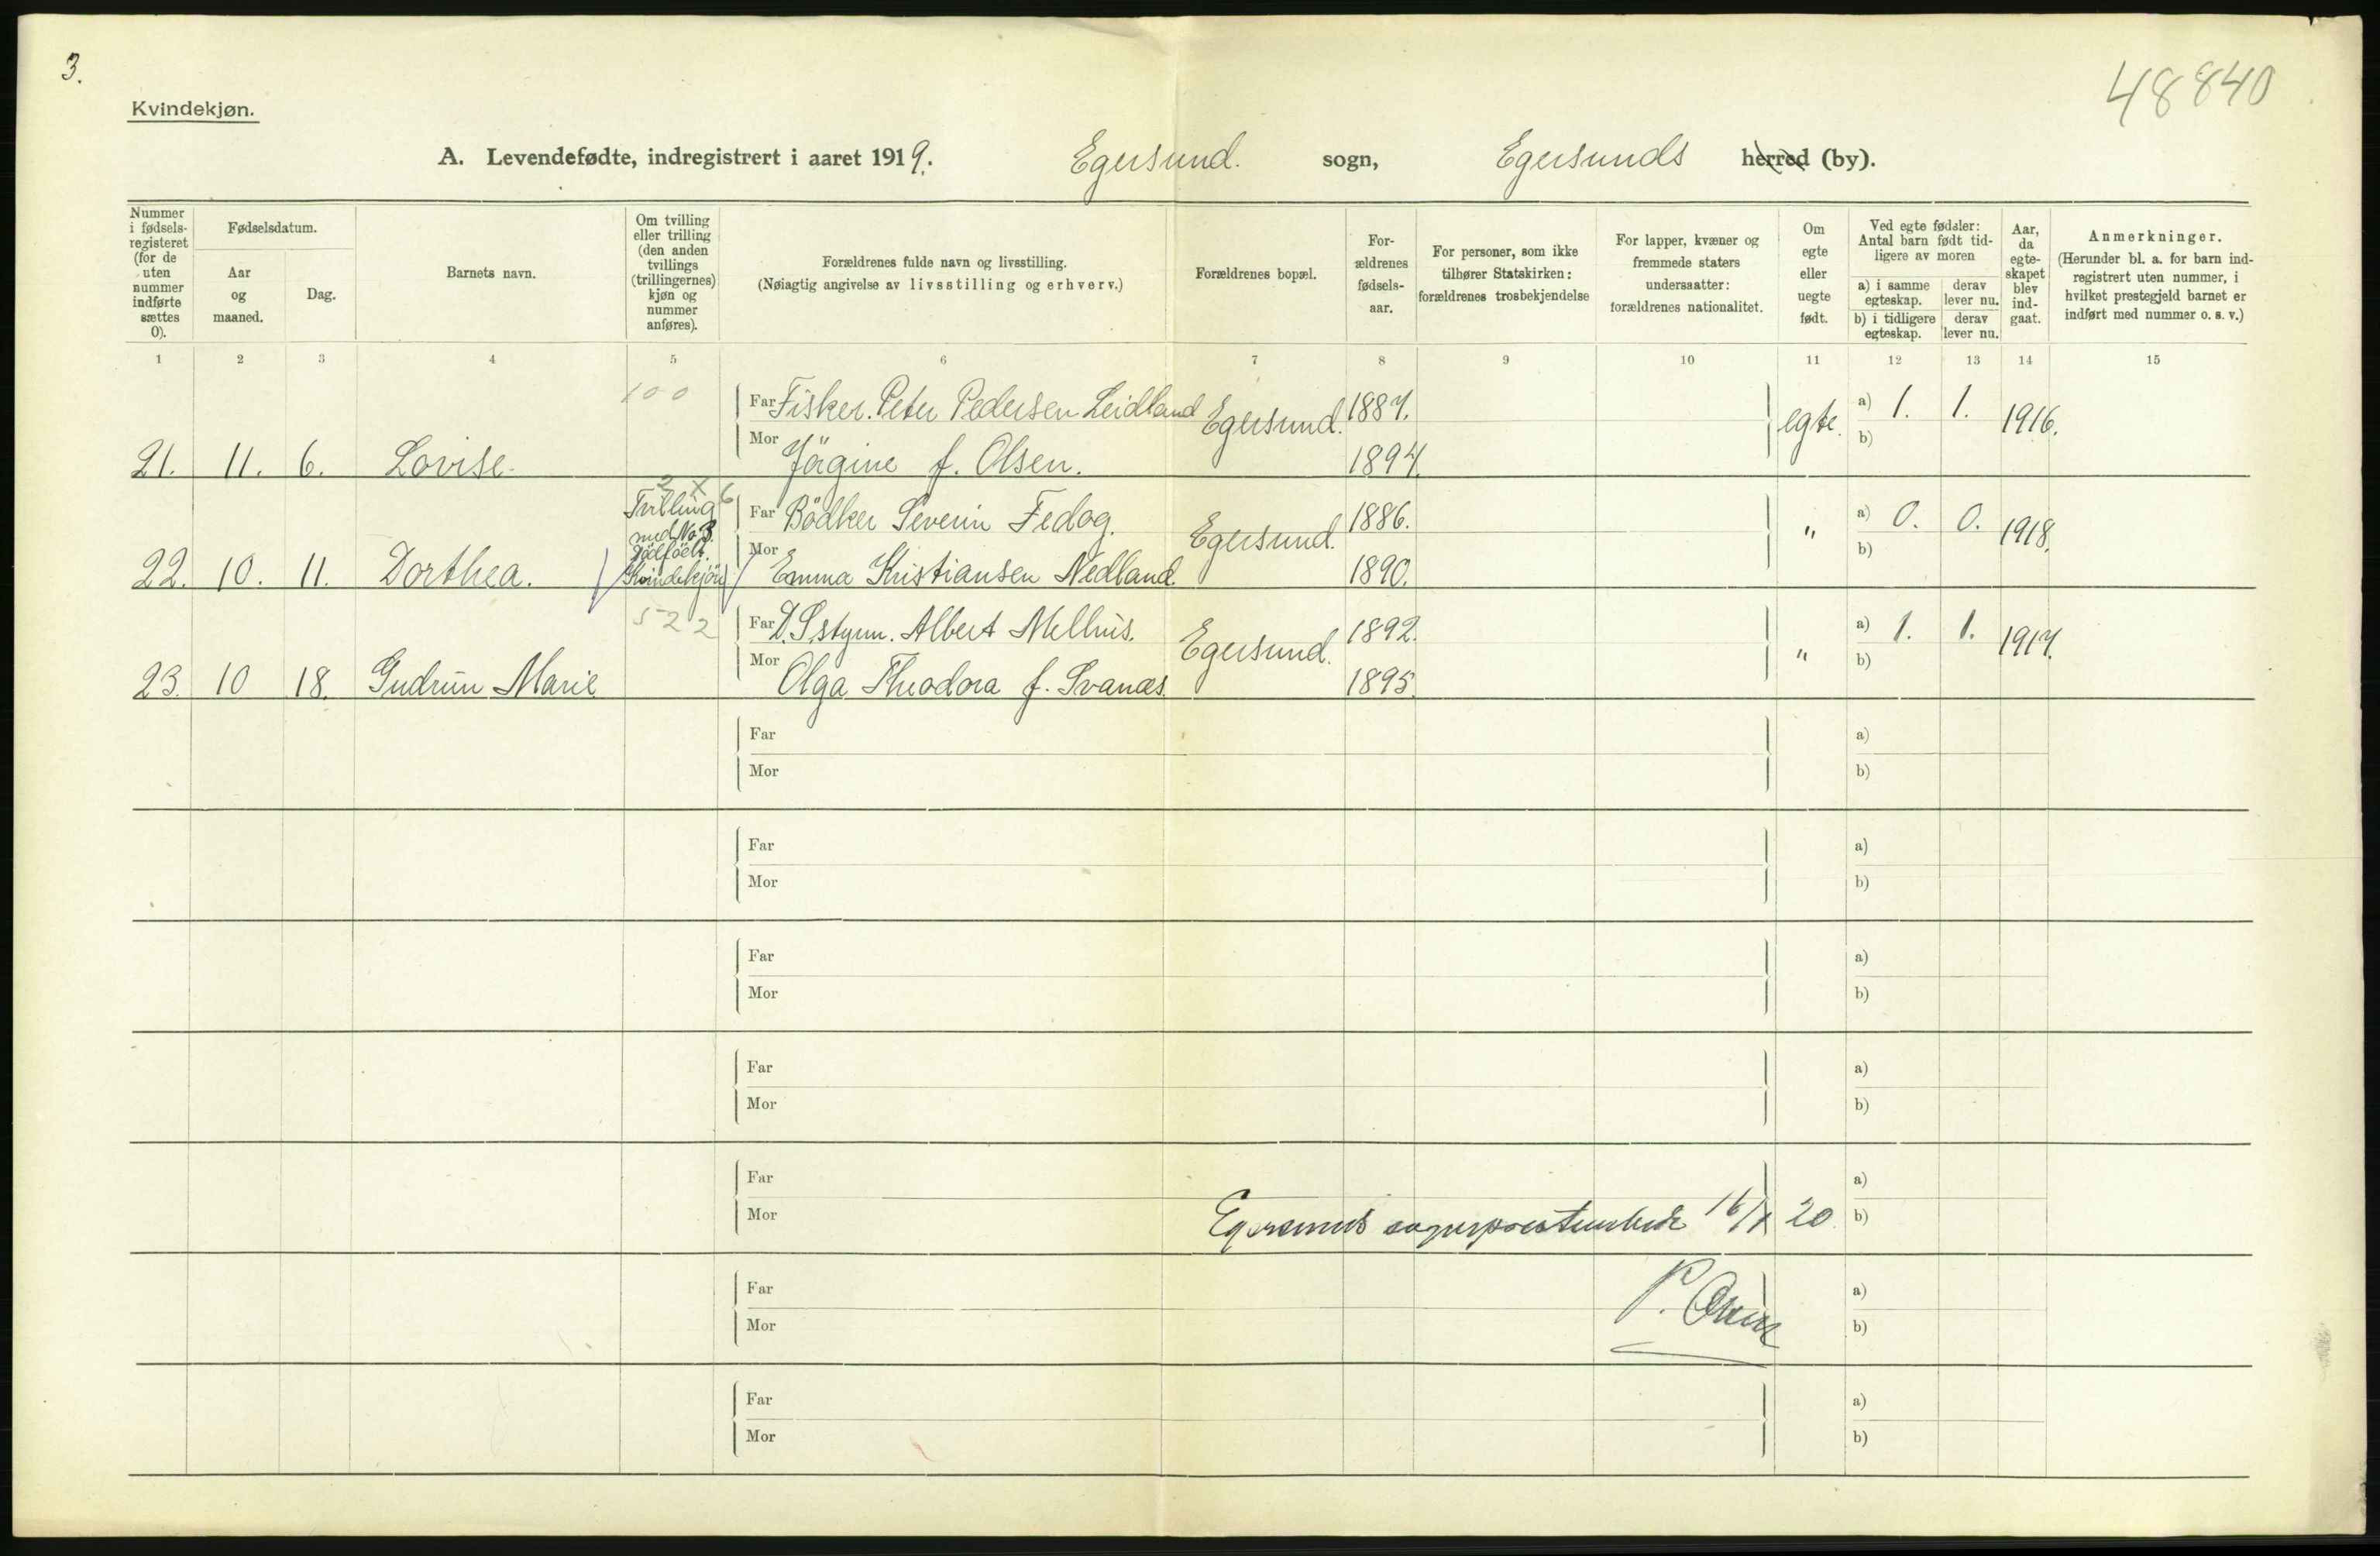 3.
48840
Kvindekjøn.
A. Levendefødte, indregistrert i aaret 1919. Egersund. sogn, Egersunds herred (by).
Nummer i fødselsregisteret (for de uten nummer indførte sættes 0).
Fødselsdatum.
Aar og maaned.
Dag.
Barnets navn.
Om tvilling eller trilling (den anden tvillings (trillingernes) kjøn og nummer anføres).
Forældrenes fulde navn og livsstilling.
(Nøiagtig angivelse av livsstilling og erhverv.)
Forældrenes bopæl.
Forældrenes fødselsaar.
For personer, som ikke tilhører Statskirken: forældrenes trosbekjendelse
For lapper, kvæner og fremmede staters undersaatter: forældrenes nationalitet.
Om egte eller uegte født.
Ved egte fødsler: Antal barn født tidligere av moren
a) i samme egteskap. derav lever nu.
b) i tidligere egteskap. derav lever nu.
Aar, da egteskapet blev indgaat.
Anmerkninger.
(Herunder bl. a. for barn indregistrert uten nummer, i hvilket prestegjeld barnet er indført med nummer o. s. v.)
1 2 3 4 5 6 7 8 9 10 11 12 13 14 15
100
Far Fisker. Peter Pedersen Leidland Egersund. 1887. egte. a) 1. 1. 1916.
21. 11. 6. Lovise. Mor Jörgine f. Olsen. 1894. b)
2 x 6
Tvilling med No 3. Dödfödt. Kvindekjön
Far Bödker Severin Fedog. Egersund. 1886. " a) 0. 0. 1918.
22. 10. 11. Dorthea. Mor Emma Kristiansen Nedland. 1890. b)
522
Far D.S.styrm. Albert Mellhus. Egersund. 1892. " a) 1. 1. 1917.
23. 10 18. Gudrun Marie Mor Olga Theodora f. Svanæs. 1895. b)
Far a)
Mor b)
Far a)
Mor b)
Far a)
Mor b)
Far a)
Mor b)
Far a)
Mor Egersunds sogneprestembede 16/1 20. b)
Far P. a)
Mor b)
Far a)
Mor b)